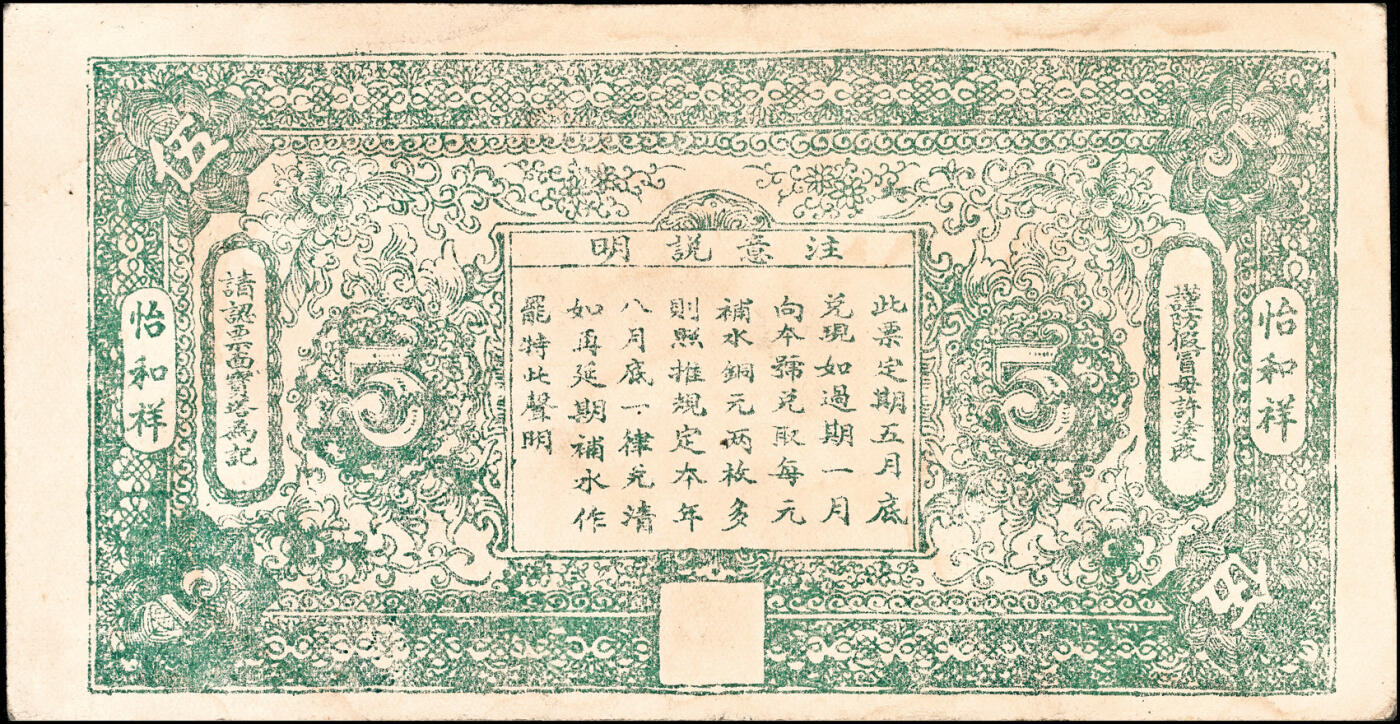 伍
5
注意說明
怡和祥
謹防假冒毋許塗改
5
此票定期五月底
兑現如過期一月
向本號兑取每元
補水銅元两枚多
則照推規定本年
八月底一律兑清
如再延期補水作
罷特此聲明
5
請認票面寳塔為記
怡和祥
5
伍